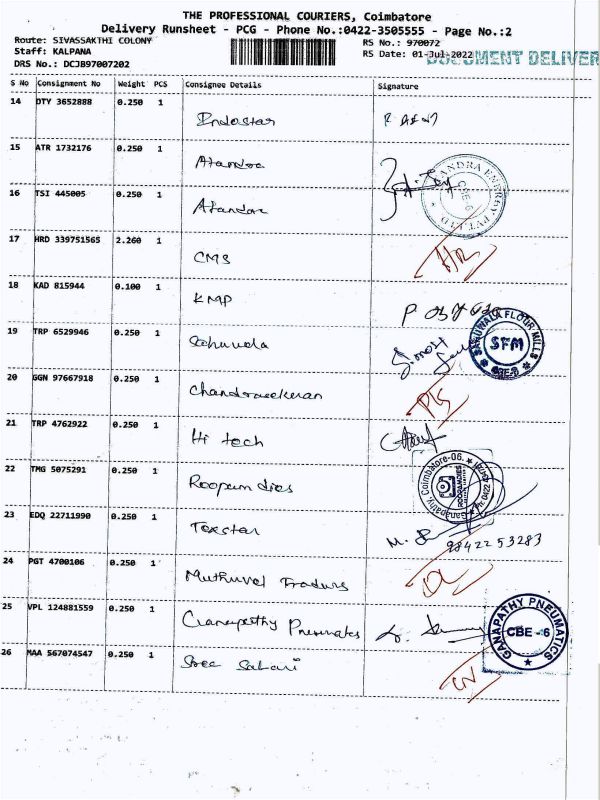 THE PROFESSIONAL COURIERS, Coimbatore
Delivery Runsheet - PCG - Phone No.:0422-3505555 - Page No.:2
Route: SIVASSAKTHI COLONY
Staff: KALPANA
DRS No.: DCJB97007202
RS No.: 970072
RS Date: 01-Jul-2022
DOCUMENT DELIVER
S No Consignment No Weight PCS Consignee Details Signature
14 DTY 3652888 0.250 1 Indostar
15 ATR 1732176 0.250 1
16 TSI 445005 0.250 1
17 HRD 339751565 2.260 1 CMS
18 KAD 815944 0.100 1 KMP
19 TRP 6529946 0.250 1
SFM
20 GGN 97667918 0.250 1
21 TRP 4762922 0.250 1 Hi tech
22 TMG 5075291 0.250 1 Roopam dies
Ganapathy, Coimbatore-06.
23 EDQ 22711990 0.250 1 Texstar
9842253283
24 PGT 4700106 0.250 1 Muthuvel Traders
25 VPL 124881559 0.250 1 Ganapathy Pneumates
GANAPATHY PNEUMATICS
CBE - 6
26 MAA 567074547 0.250 1 Sree